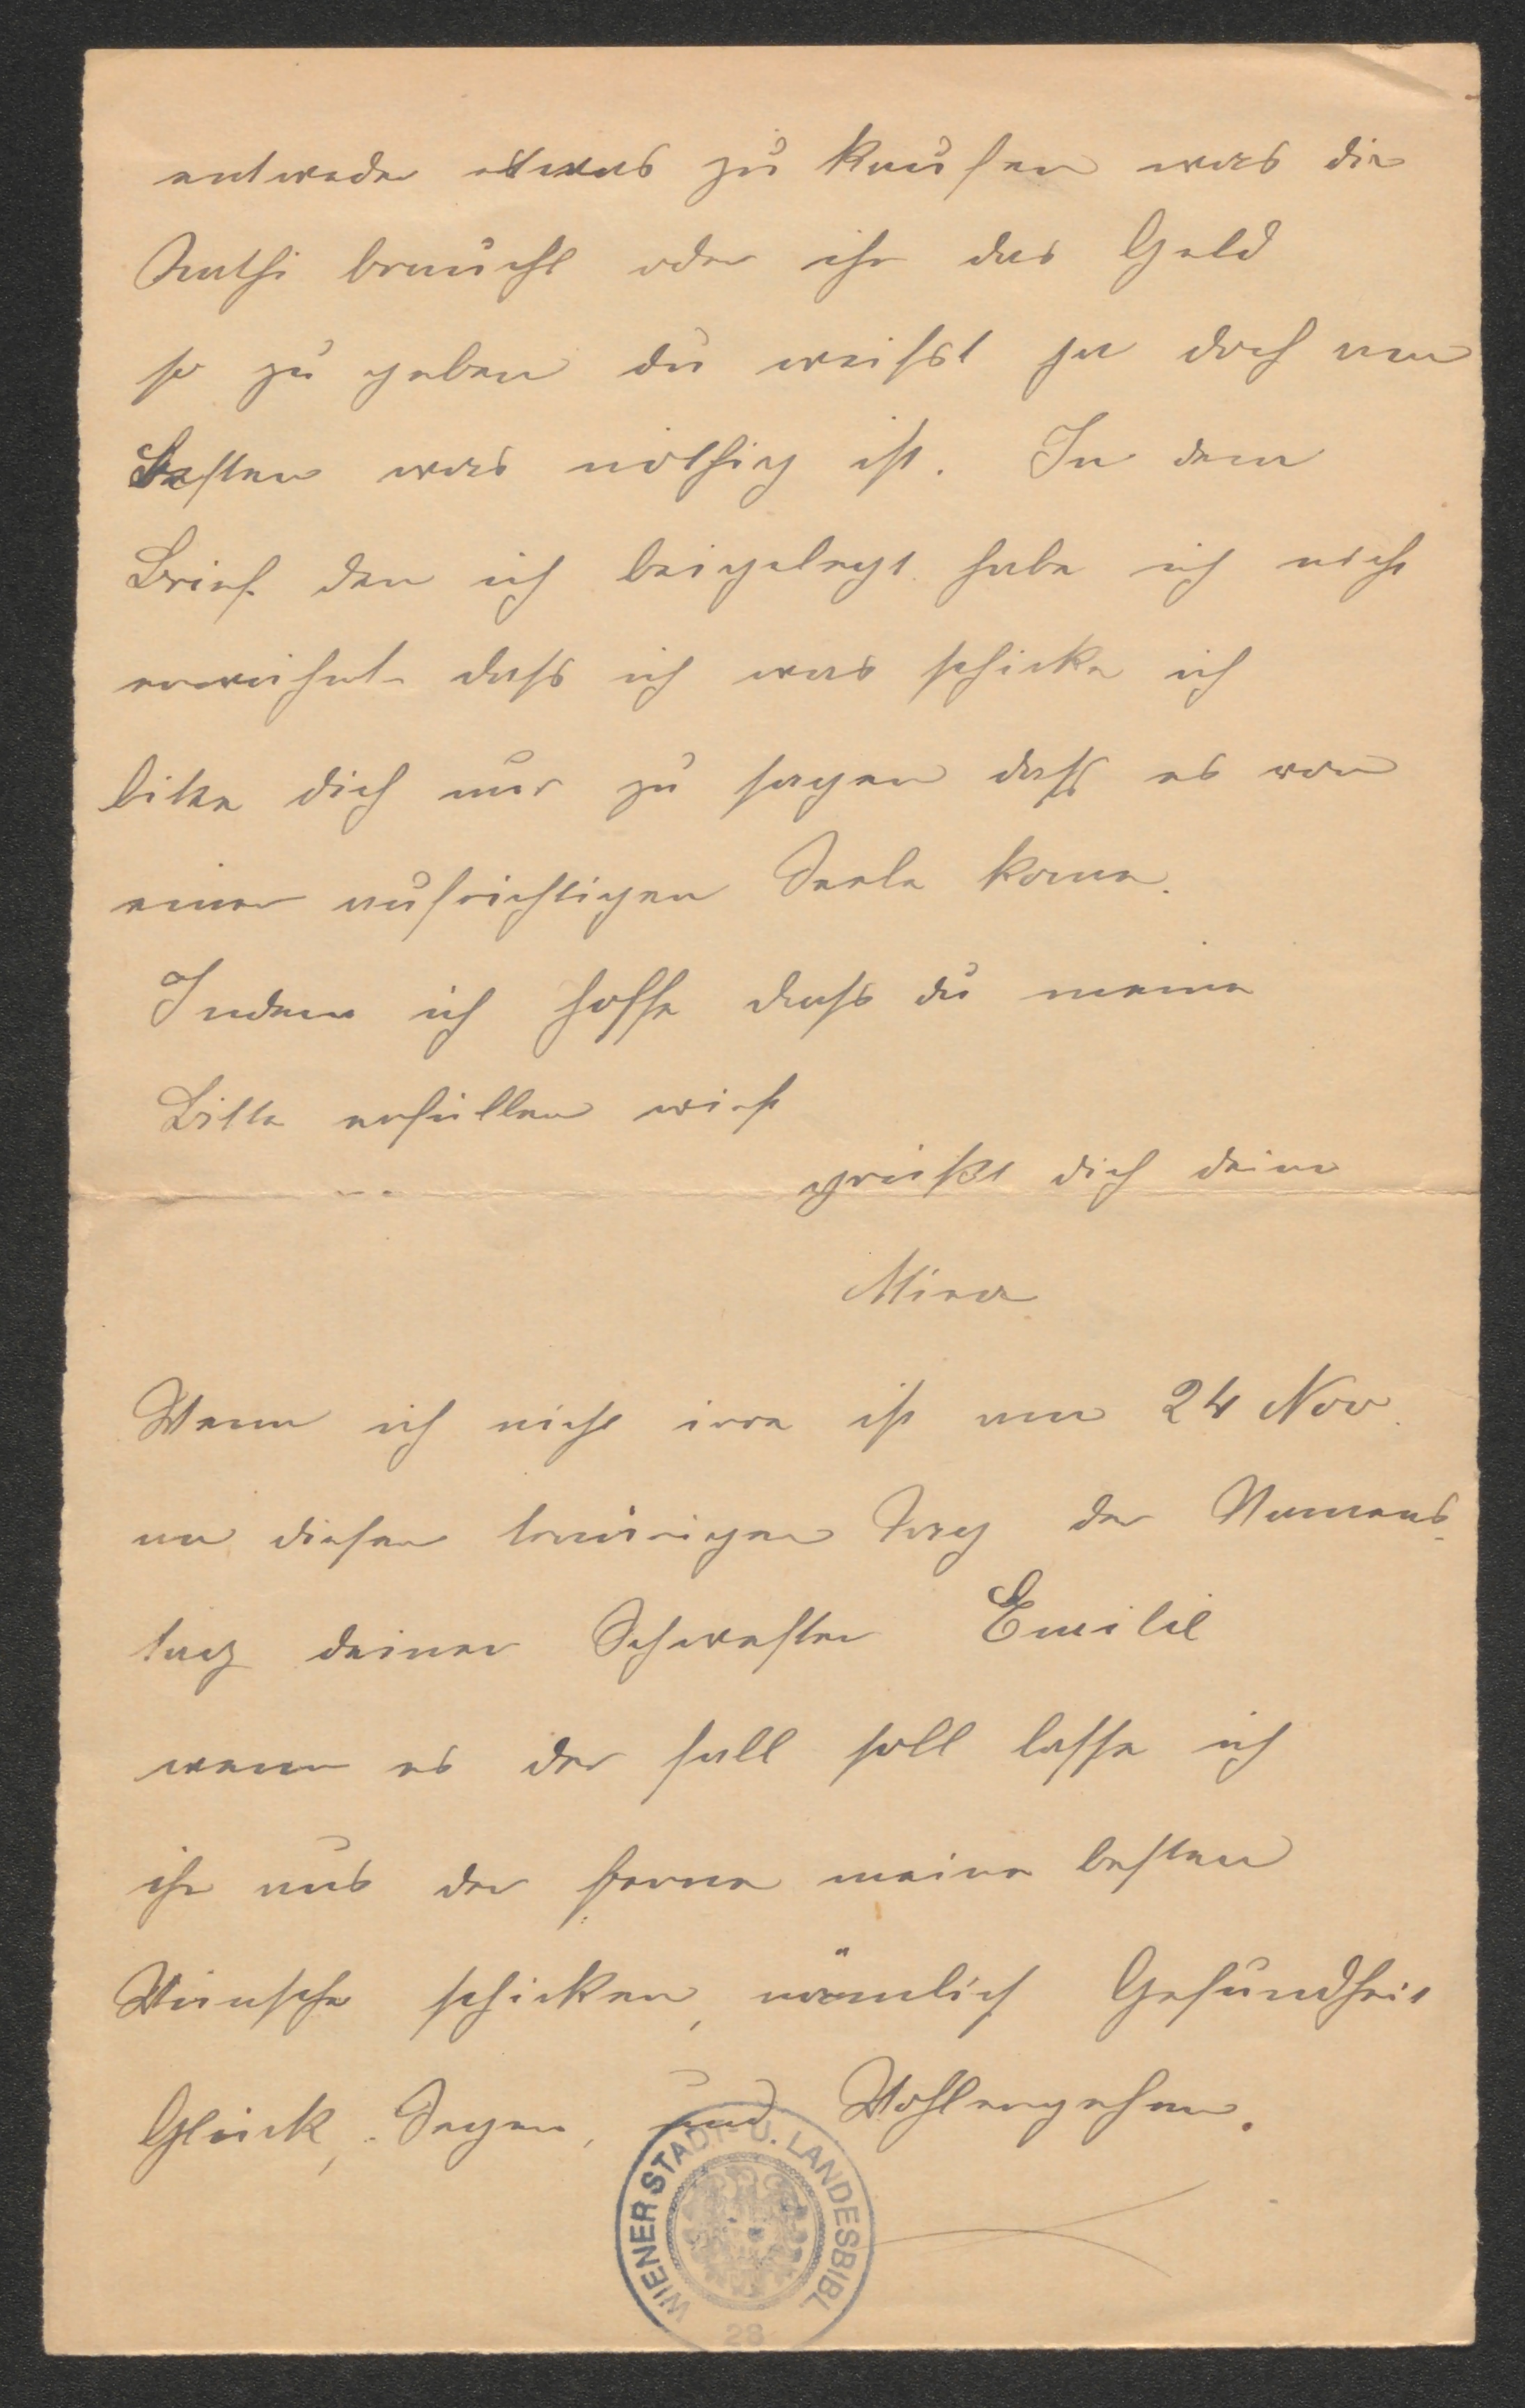 entweder etwas zu kaufen was die
Kathi braucht oder ihr das Geld
so zu geben du weißst ja doch am
Besten was nöthig ist. In dem
Brief den ich beigelegt habe ich nicht
erwähnt dass ich was schicke ich
bitte dich nur zu sagen dass es von
einer aufrichtigen Seele kome.
Indem ich hoffe dass du meine
Bitte erfüllen wirst
grüßt dich deine
Mina
Wenn ich nicht irre ist am 24 Nov.
an diesen traurigen Tag der Namens-
tag deiner Schwester Emilie
wenn es der fall soll lasse ich
ihr aus der ferne meine besten
Wünsche schicken, nämlich Gesundheit
Glück, Segen, und Wohlergehen.
WIENER STADT- U. LANDESBIBL
28